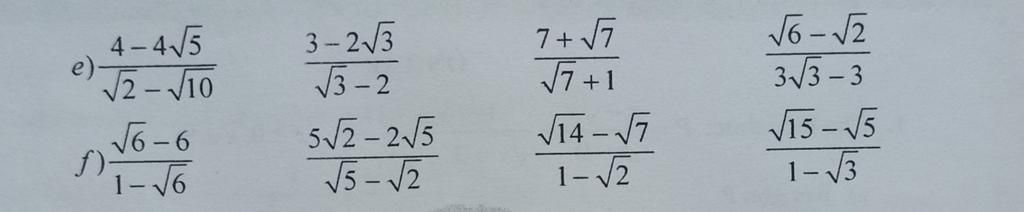 e) \frac{4-4\sqrt{5}}{\sqrt{2}-\sqrt{10}} \frac{3-2\sqrt{3}}{\sqrt{3}-2} \frac{7+\sqrt{7}}{\sqrt{7}+1} \frac{\sqrt{6}-\sqrt{2}}{3\sqrt{3}-3}
f) \frac{\sqrt{6}-6}{1-\sqrt{6}} \frac{5\sqrt{2}-2\sqrt{5}}{\sqrt{5}-\sqrt{2}} \frac{\sqrt{14}-\sqrt{7}}{1-\sqrt{2}} \frac{\sqrt{15}-\sqrt{5}}{1-\sqrt{3}}